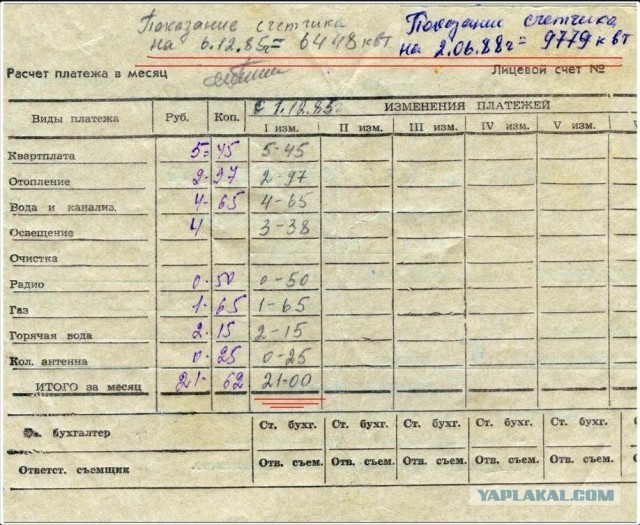 Показание счетчика
на 6.12.85г = 6448 квт
Показание счетчика
на 2.06.88г = 9779 квт
Расчет платежа в месяц
Лицевой счет №
Виды платежа Руб. Коп. ИЗМЕНЕНИЯ ПЛАТЕЖЕЙ
с 1.12.85г
I изм. II изм. III изм. IV изм. V изм. V
Квартплата 5- 45 5-45
Отопление 2- 97 2-97
Вода и канализ. 4- 65 4-65
Освещение 4 3-38
Очистка
Радио 0- 50 0-50
Газ 1- 65 1-65
Горячая вода 2- 15 2-15
Кол. антенна 0- 25 0-25
ИТОГО за месяц 21- 62 21-00
бухгалтер Ст. бухг. Ст. бухг. Ст. бухг. Ст. бухг. Ст. бухг. Ст.
Ответст. съемщик Отв. съем. Отв. съем. Отв. съем. Отв. съем. Отв. съем. Отв.
YAPLAKAL.COM